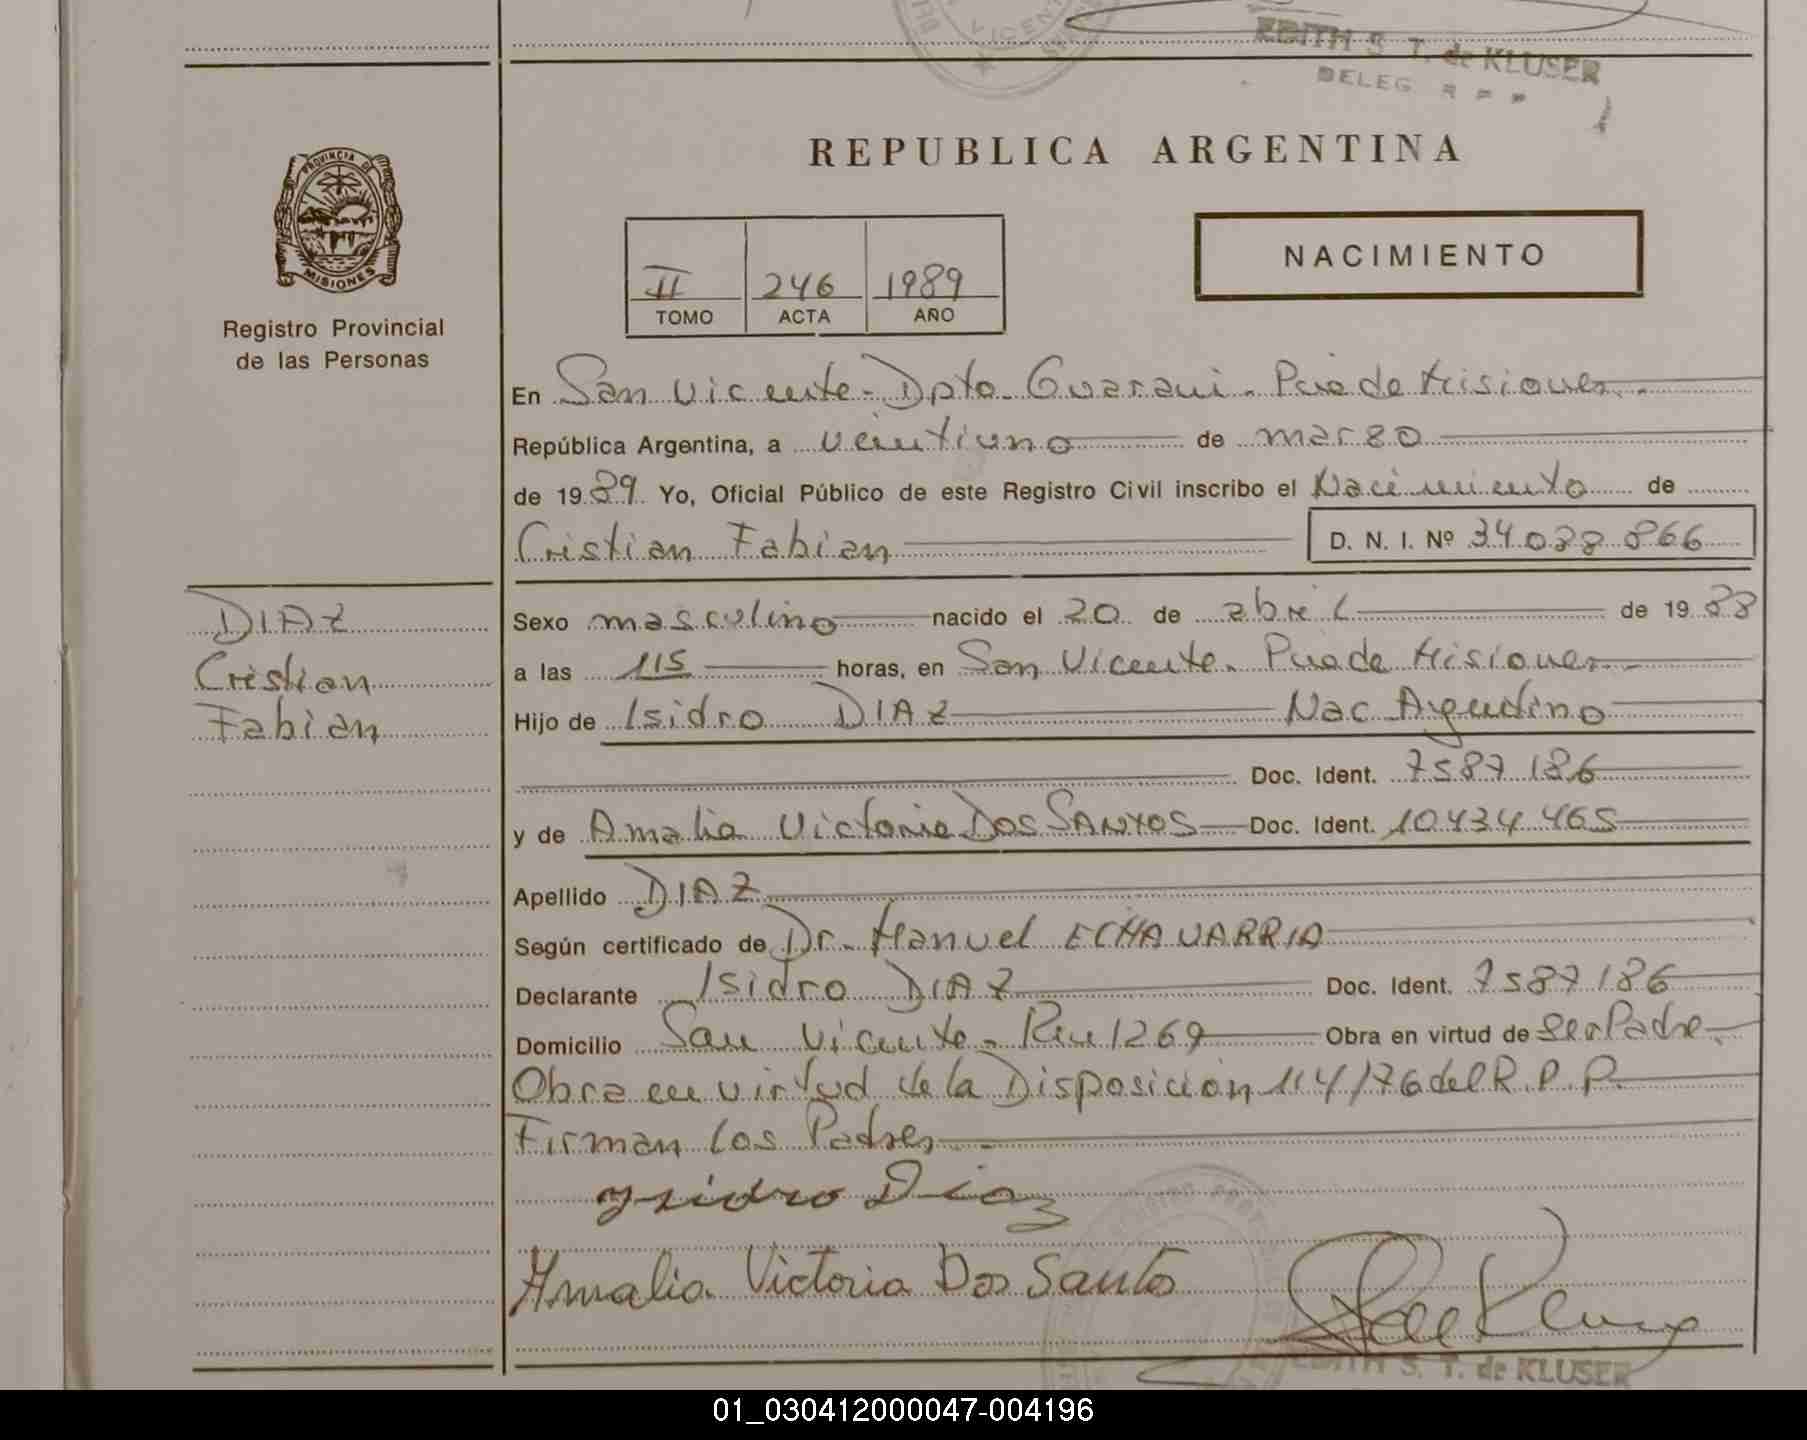 EDITH S. T. de KLUSER
DELEG
REPUBLICA ARGENTINA
PROVINCIA DE
MISIONES
Registro Provincial
de las Personas
II 246 1989
TOMO ACTA AÑO
NACIMIENTO
En San Vicente - Dpto. Guarani. Pcia de Misiones.
República Argentina, a veintiuno de marzo
de 1989 Yo, Oficial Público de este Registro Civil inscribo el Nacimiento de
Cristian Fabian D. N. I. Nº 34.038.866
DIAZ
Cristian
Fabian
Sexo masculino nacido el 20 de abril de 1988
a las 115 horas, en San Vicente. Pcia de Misiones.
Hijo de Isidro DIAZ Nac Argentino
Doc. Ident. 7587186
y de Amalia Victoria Dos SANTOS Doc. Ident. 10.434.465
Apellido DIAZ
Según certificado de Dr. Manuel ECHAVARRIA
Declarante Isidro DIAZ Doc. Ident. 7587186
Domicilio San Vicente - Km 1269 Obra en virtud de ser Padre.
Obra en virtud de la Disposición 114/76 del R.P.P.
Firman los Padres
Ysidro Diaz
Amalia Victoria Dos Santos
EDITH S. T. de KLUSER
01_030412000047-004196